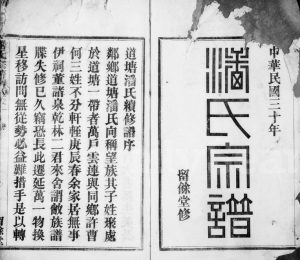 中華民國三十年
潘氏宗譜
畱餘堂修
道塘潘氏續修譜序
鄰鄉道塘潘氏向稱望族其子姓聚處
於道塘一帶者萬戶雲連與同鄉許曹
何三姓不分軒輊庚辰春余家居無事
伊祠董諸泉乾林二君來舍謂敝族譜
牒失修已久竊恐長此遷延萬一物換
星移訪問無從勢必益難措手是以轉